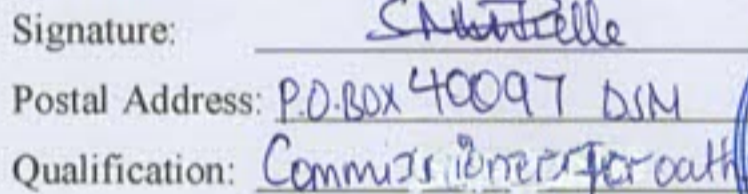 Signature:
Postal Address: P.O.BOX 40097 DSM
Qualification: Commissioner for oath